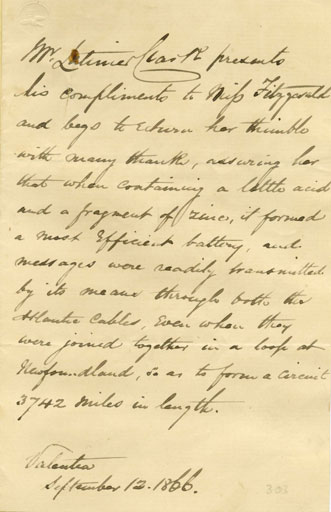 Mr Latimer Clark presents
his compliments to Miss Fitzgerald
and begs to return her thimble
with many thanks, assuring her
that when containing a little acid
and a fragment of zinc, it formed
a most Efficient battery, and
messages were readily transmitted
by its means through both the
Atlantic Cables, Even when they
were joined together in a loop at
Newfoundland, so as to form a circuit
3742 Miles in length.
Valentia
September 12. 1866.
303